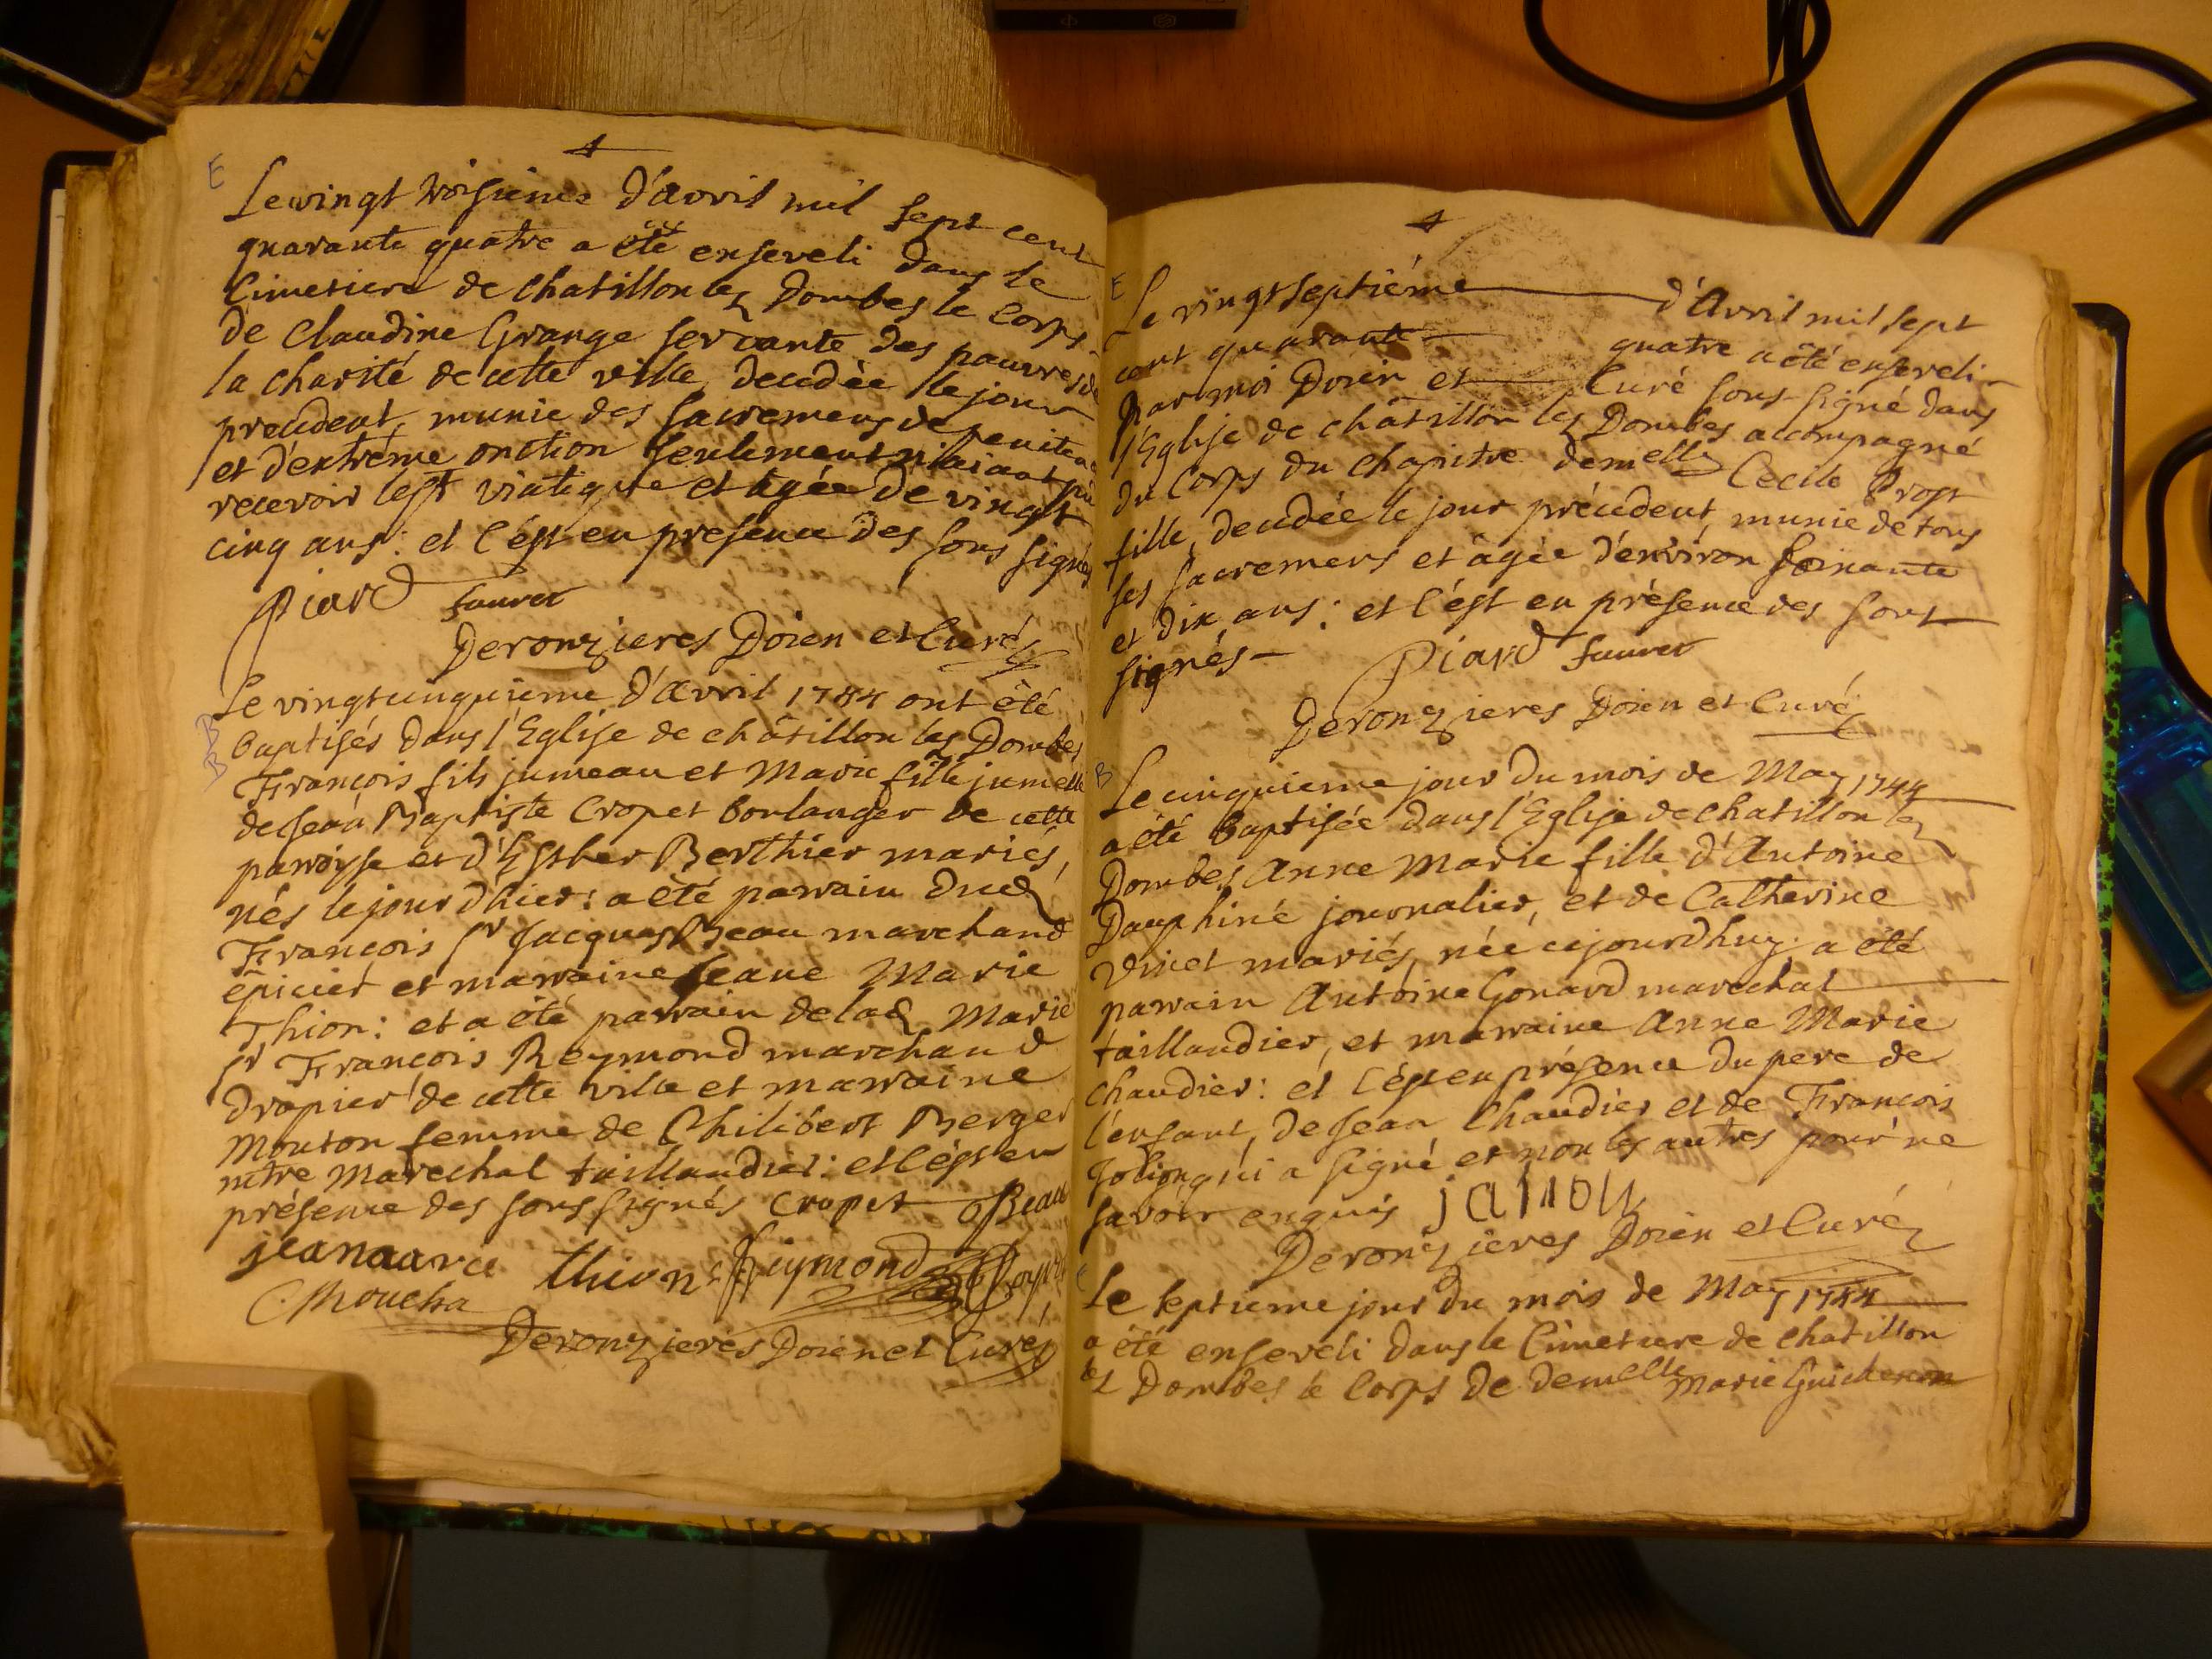 E
Le vingt troisieme d'avril mil sept cent
quarante quatre a été enseveli dans le
Cimetiere de chatillon les Dombes le Corps
de Claudine Grange servante des pauvres de
la charité de cette ville, decedée le jour
precedent, munie des sacremens de penitence
et d'extrême onction seulement n'aiant pu
recevoir le st viatique et âgée de vingt
cinq ans: et c'est en presence des sous signés
Piard Sauret
Deronzieres Doien et Curé
B
B
Le vingt cinquieme d'avril 1744 ont été
baptisés dans l'Eglise de châtillon les Dombes
François fils jumeau et Marie fille jumelle
de Jean Baptiste Cropet boulanger de cette
paroisse et d'Esther Berthier mariés,
nés le jour d'hier: a été parrain dud
François sr Jacques Beau marchand
épicier et marraine Jeane Marie
Thion: et a été parrain de lad Marie
sr François Reymond marchand
drapier de cette ville et marraine
Mouton femme de Philibert Berger
mtre Marechal taillandier: et c'est en
présence des sous signés Cropet Beau
jeanaarie thion Reymond
Deronzieres Doien et Curé
E
Le vingt septiéme d'Avril mil sept
cent quarante quatre a été enseveli
par moi Doien et Curé sous signé dans
l'Eglise de châtillon les Dombes accompagné
du Corps du chapitre demelle Cecile Prost
fille, decedée le jour précedent, munie de tous
ses sacremens et âgée d'environ soixante
et dix ans: et c'est en présence des sous
signés
Piard Sauret
Deronzieres Doien et Curé
B
Le cinquieme jour du mois de May 1744
a été baptisée dans l'Eglise de chatillon les
Dombes Anne Marie fille d'Antoine
Dauphiné journalier, et de Catherine
Vinet mariés, née cejourdhuy: a été
parrain Antoine Gonard marechal
taillandier, et marraine Anne Marie
Chaudier: et c'est en présence du pere de
l'enfant, de Jean Chaudier et de François
qui a signé et non les autres pour ne
savoir enquis
Deronzieres Doien et Curé
Le septieme jour du mois de May 1744
a été enseveli dans le Cimetiere de chatillon
les Dombes le Corps de demelle Marie Guichenon